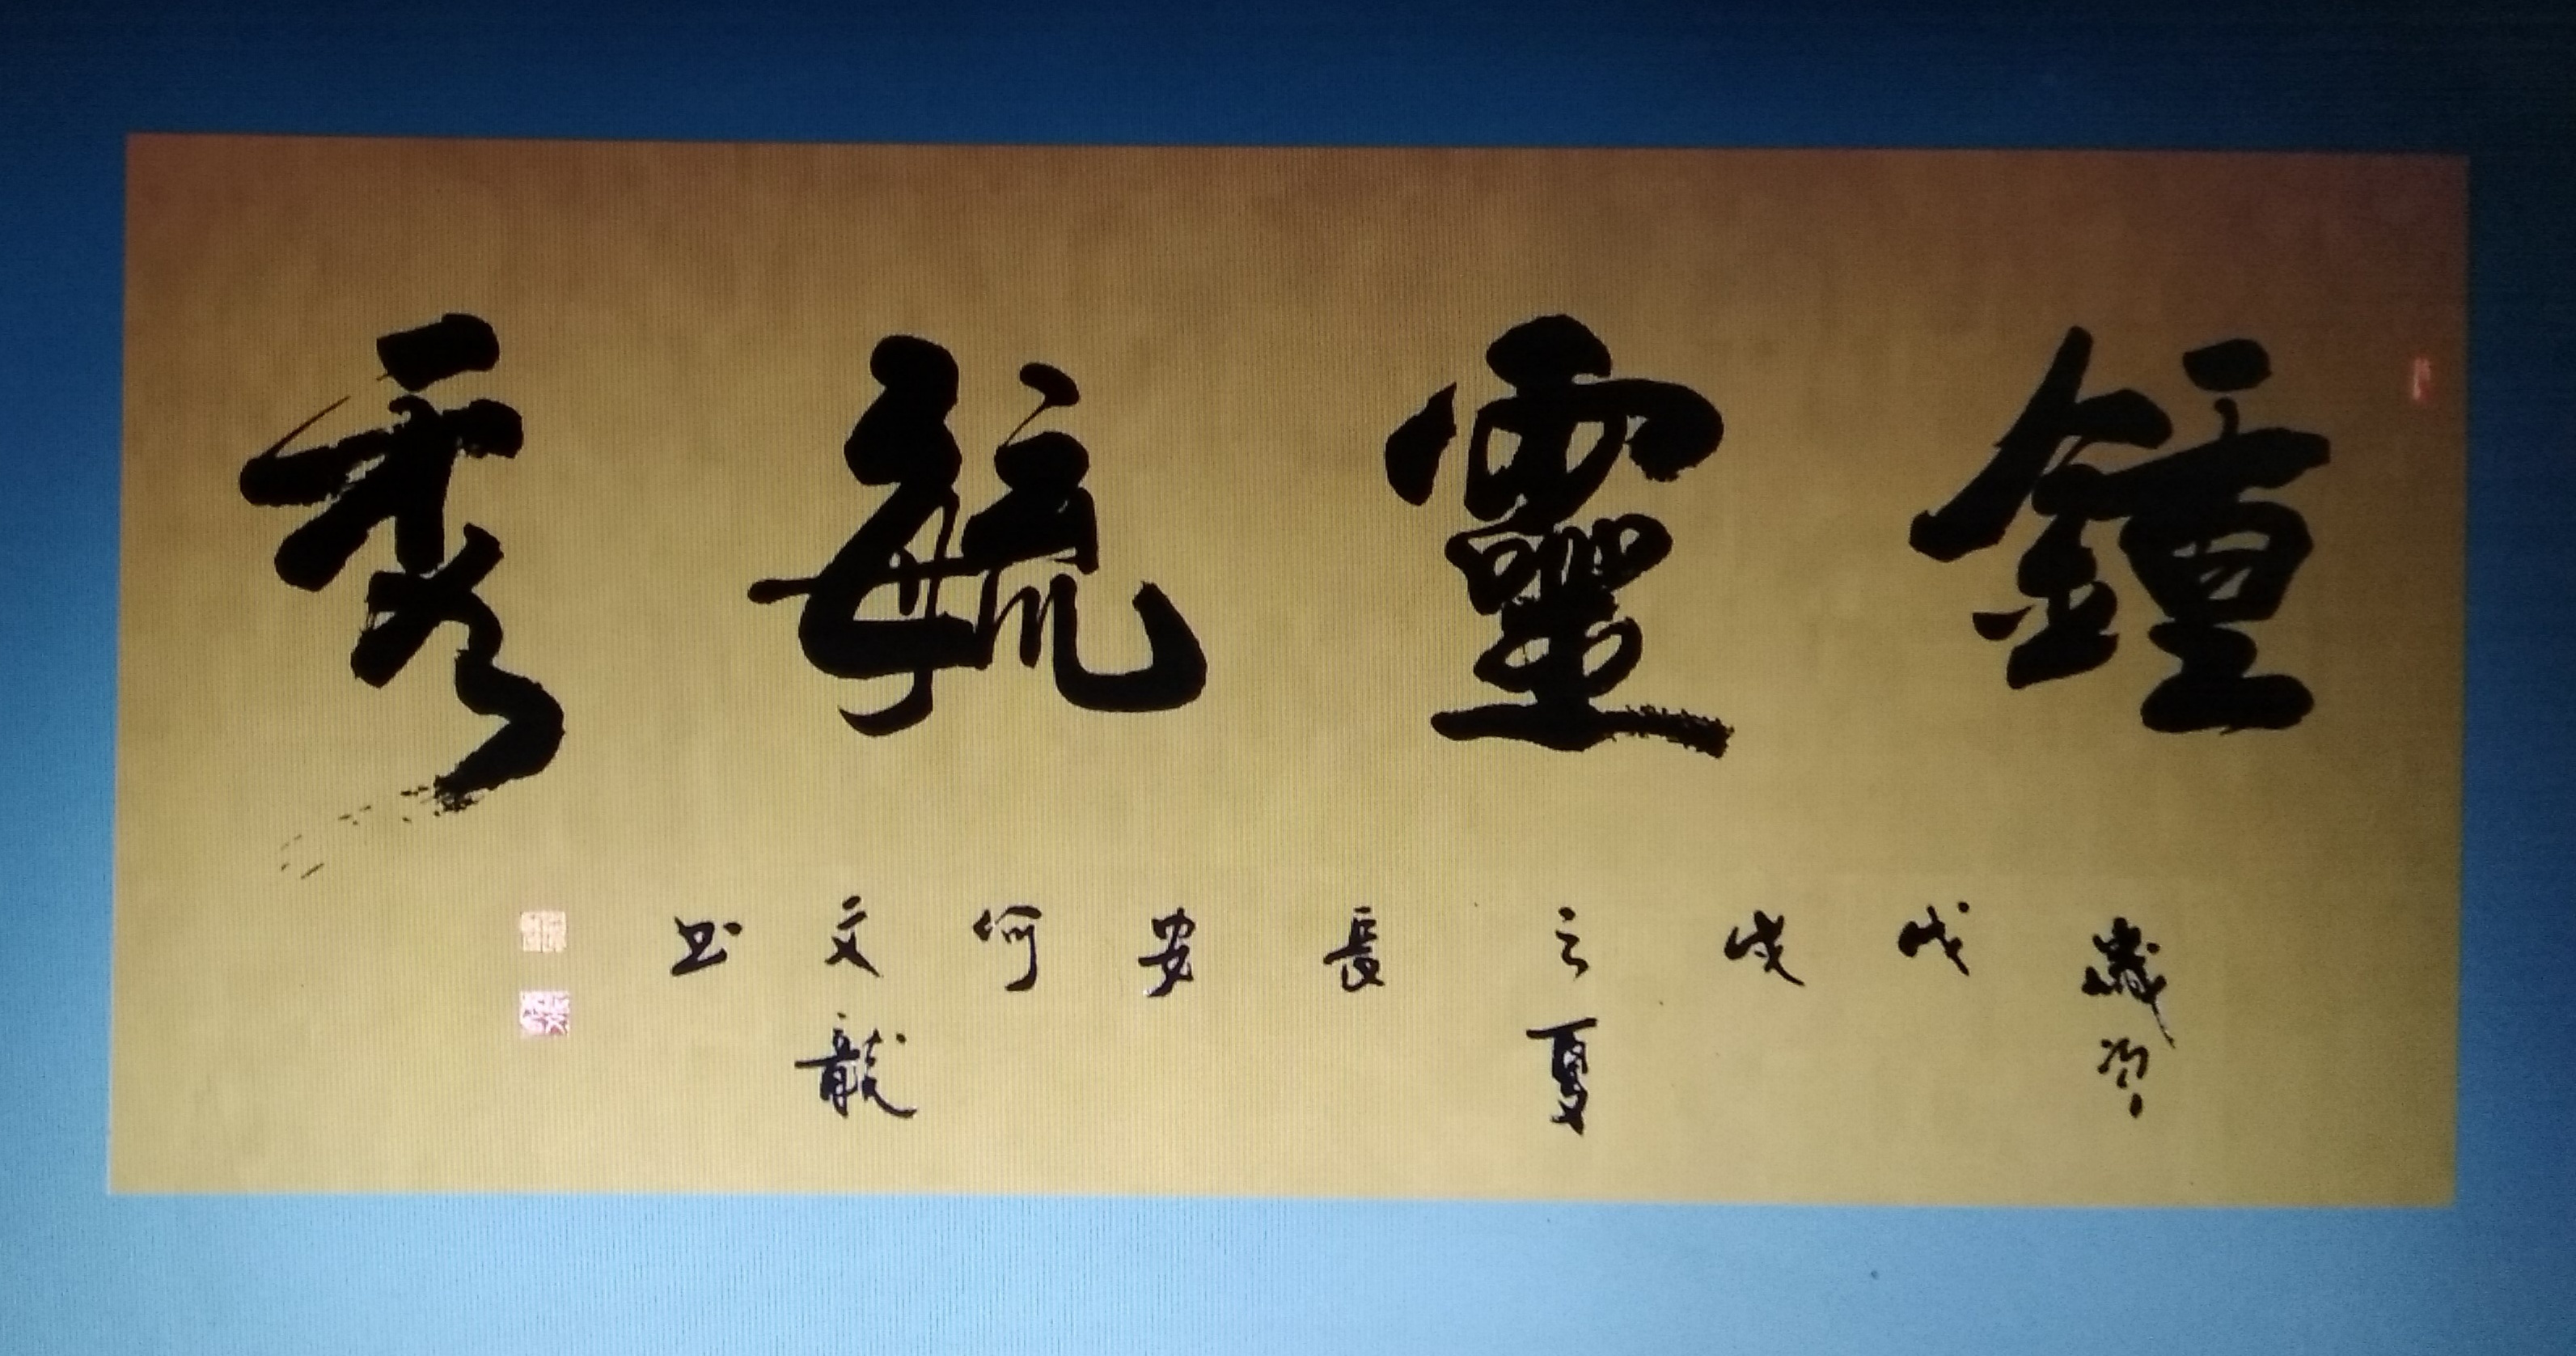 鍾靈毓秀
歲次戊戌之夏長安何文龍书